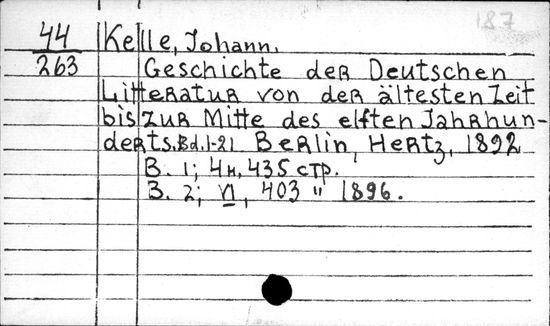 187
44 Kelle, Johann.
263 Geschichte der Deutschen
Litteratur von der ältesten Zeit
bis zur Mitte des elften Jahrhun-
derts. Bd. 1-2. Berlin, Hertz, 1892
B. 1; 4н, 435 стр.
B. 2; VI, 403 " 1896.